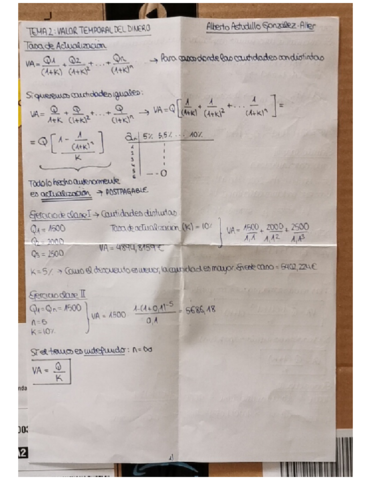 TEMA 2: VALOR TEMPORAL DEL DINERO
Alberto Astudillo González-Aller
Tasa de Actualización
VA = Q1/(1+K) + Q2/(1+K)² + ... + Qn/(1+K)ⁿ → Para casos donde las cantidades son distintas
Si queremos cantidades iguales:
VA = Q/1+K + Q/(1+K)² + ... + Q/(1+K)ⁿ → VA = Q [1/(1+K) + 1/(1+K)² + ... 1/(1+K)ⁿ] =
= Q [1 - 1/(1+K)ⁿ / K]
5% 5.5% ... 10%
Todo lo hecho anteriormente
es actualización → POSTPAGABLE
Ejercicio de clase I → Cantidades distintas
Q1 = 1500
Tasa de actualización (K) = 10%
VA = 1500/1.1 + 2000/1.1² + 2500/1.1³
Q2 = 2000
Q3 = 2500
K = 5% = Como el descuento es menor, la cantidad es mayor. En este caso =
Ejercicio clase II
Q1 = Qn = 1500
n = 5
VA = 1500 1-(1+0,1)⁻⁵/0,1 = 5686,18
K = 10%
Si el tiempo es indefinido: n = ∞
VA = Q/K